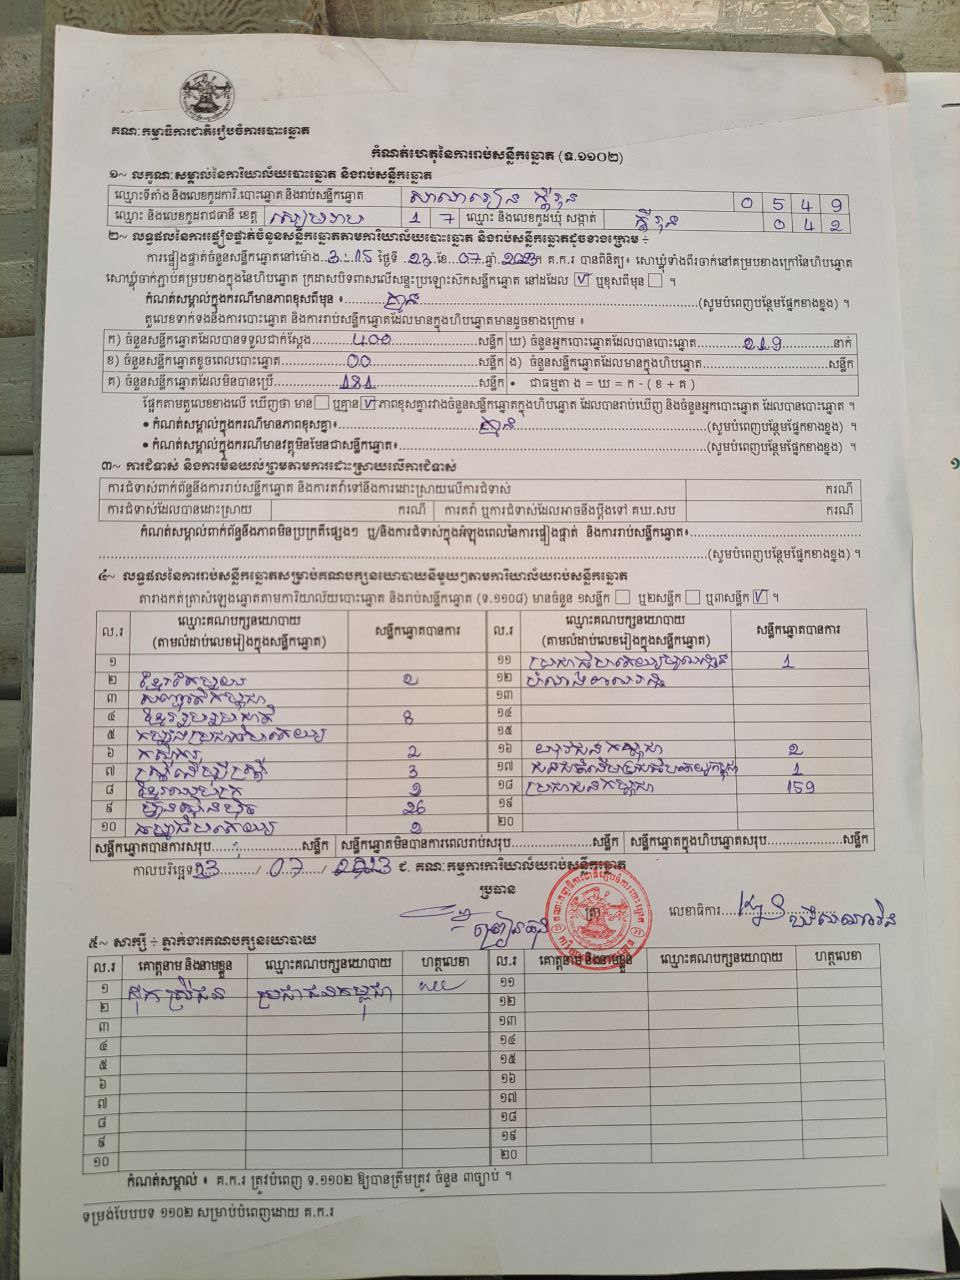 គណៈកម្មាធិការជាតិរៀបចំការបោះឆ្នោត
កំណត់ហេតុនៃការរាប់សន្លឹកឆ្នោត (ទ.១១០២)
១~ លក្ខណៈសម្គាល់នៃការិយាល័យបោះឆ្នោត និងរាប់សន្លឹកឆ្នោត
ឈ្មោះទីតាំង និងលេខកូដការិ.បោះឆ្នោត និងរាប់សន្លឹកឆ្នោត សាលារៀន 0 5 4 9
ឈ្មោះ និងលេខកូដរាជធានី ខេត្ត សៀមរាប 1 7 ឈ្មោះ និងលេខកូដឃុំ សង្កាត់ 0 4 2
២~ លទ្ធផលនៃការផ្ទៀងផ្ទាត់ចំនួនសន្លឹកឆ្នោតតាមការិយាល័យបោះឆ្នោត និងរាប់សន្លឹកឆ្នោតដូចខាងក្រោម ÷
ការផ្ទៀងផ្ទាត់ចំនួនសន្លឹកឆ្នោតនៅម៉ោង 3:15 ថ្ងៃទី 23 ខែ 07 ឆ្នាំ 2023។ គ.ក.រ បានពិនិត្យ៖ សោឃ្លុំទាំងពីរចាក់នៅគម្របខាងក្រៅនៃហិបឆ្នោត
សោឃ្លុំចាក់ភ្ជាប់គម្របខាងក្នុងនៃហិបឆ្នោត ក្រដាសបិទពាសលើសន្ទះប្រឡោះសិកសន្លឹកឆ្នោត នៅដដែល ☑ ឬខុសពីមុន ☐ ។
កំណត់សម្គាល់ក្នុងករណីមានភាពខុសពីមុន ៖ គ្មាន (សូមបំពេញបន្ថែមផ្នែកខាងខ្នង) ។
តួលេខទាក់ទងនឹងការបោះឆ្នោត និងការរាប់សន្លឹកឆ្នោតដែលមានក្នុងហិបឆ្នោតមានដូចខាងក្រោម ៖
ក) ចំនួនសន្លឹកឆ្នោតដែលបានទទួលជាក់ស្ដែង 400 សន្លឹក ឃ) ចំនួនអ្នកបោះឆ្នោតដែលបានបោះឆ្នោត 219 នាក់
ខ) ចំនួនសន្លឹកឆ្នោតខូចពេលបោះឆ្នោត 00 សន្លឹក ង) ចំនួនសន្លឹកឆ្នោតដែលមានក្នុងហិបឆ្នោត សន្លឹក
គ) ចំនួនសន្លឹកឆ្នោតដែលមិនបានប្រើ 181 សន្លឹក • ជាធម្មតា ង = ឃ = ក - ( ខ + គ )
ផ្អែកតាមតួលេខខាងលើ ឃើញថា មាន ☐ ឬគ្មាន ☑ ភាពខុសគ្នារវាងចំនួនសន្លឹកឆ្នោតក្នុងហិបឆ្នោត ដែលបានរាប់ឃើញ និងចំនួនអ្នកបោះឆ្នោត ដែលបានបោះឆ្នោត ។
• កំណត់សម្គាល់ក្នុងករណីមានភាពខុសគ្នា៖ គ្មាន (សូមបំពេញបន្ថែមផ្នែកខាងខ្នង) ។
• កំណត់សម្គាល់ក្នុងករណីមានវត្ថុមិនមែនជាសន្លឹកឆ្នោត៖ (សូមបំពេញបន្ថែមផ្នែកខាងខ្នង) ។
៣~ ការជំទាស់ និងការមិនយល់ព្រមតាមការដោះស្រាយលើការជំទាស់
ការជំទាស់ពាក់ព័ន្ធនឹងការរាប់សន្លឹកឆ្នោត និងការតវ៉ាទៅនឹងការដោះស្រាយលើការជំទាស់ ករណី
ការជំទាស់ដែលបានដោះស្រាយ ករណី ការតវ៉ា ឬការជំទាស់ដែលអាចនឹងប្ដឹងទៅ គឃ.សប ករណី
កំណត់សម្គាល់ពាក់ព័ន្ធនឹងភាពមិនប្រក្រតីផ្សេងៗ ឬ/និងការជំទាស់ក្នុងអំឡុងពេលនៃការផ្ទៀងផ្ទាត់ និងការរាប់សន្លឹកឆ្នោត៖
(សូមបំពេញបន្ថែមផ្នែកខាងខ្នង) ។
៤~ លទ្ធផលនៃការរាប់សន្លឹកឆ្នោតសម្រាប់គណបក្សនយោបាយនីមួយៗតាមការិយាល័យរាប់សន្លឹកឆ្នោត
តារាងកត់ត្រាសំឡេងឆ្នោតតាមការិយាល័យបោះឆ្នោត និងរាប់សន្លឹកឆ្នោត (ទ.១១០៨) មានចំនួន ១សន្លឹក ☐ ឬ២សន្លឹក ☐ ឬ៣សន្លឹក ☑ ។
ល.រ ឈ្មោះគណបក្សនយោបាយ សន្លឹកឆ្នោតបានការ ល.រ ឈ្មោះគណបក្សនយោបាយ សន្លឹកឆ្នោតបានការ
(តាមលំដាប់លេខរៀងក្នុងសន្លឹកឆ្នោត) (តាមលំដាប់លេខរៀងក្នុងសន្លឹកឆ្នោត)
១ ១១ 1
២ ខ្មែរតែមួយ ១២
៣ ១៣
៤ 8 ១៤
៥ កម្លាំងប្រជាធិបតេយ្យ ១៥
៦ កសិករ 2 ១៦ យុវជនកម្ពុជា 2
៧ ស្ត្រីដើម្បីស្ត្រី 3 ១៧ 1
៨ ១៨ ប្រជាជនកម្ពុជា 159
៩ ហ៊្វុនស៊ិនប៉ិច 26 ១៩
១០ ២០
សន្លឹកឆ្នោតបានការសរុប សន្លឹក សន្លឹកឆ្នោតមិនបានការពេលរាប់សរុប សន្លឹក សន្លឹកឆ្នោតក្នុងហិបឆ្នោតសរុប សន្លឹក
កាលបរិច្ឆេទ 23 / 07 / 2023 ជ. គណៈកម្មការការិយាល័យរាប់សន្លឹកឆ្នោត
ប្រធាន
ត្រា
លេខាធិការ
៥~ សាក្សី ÷ ភ្នាក់ងារគណបក្សនយោបាយ
ល.រ គោត្តនាម និងនាមខ្លួន ឈ្មោះគណបក្សនយោបាយ ហត្ថលេខា ល.រ គោត្តនាម និងនាមខ្លួន ឈ្មោះគណបក្សនយោបាយ ហត្ថលេខា
១ ប្រជាជនកម្ពុជា ១១
២ ១២
៣ ១៣
៤ ១៤
៥ ១៥
៦ ១៦
៧ ១៧
៨ ១៨
៩ ១៩
១០ ២០
កំណត់សម្គាល់ ៖ គ.ក.រ ត្រូវបំពេញ ទ.១១០២ ឱ្យបានត្រឹមត្រូវ ចំនួន ៣ច្បាប់ ។
ទម្រង់បែបបទ ១១០២ សម្រាប់បំពេញដោយ គ.ក.រ